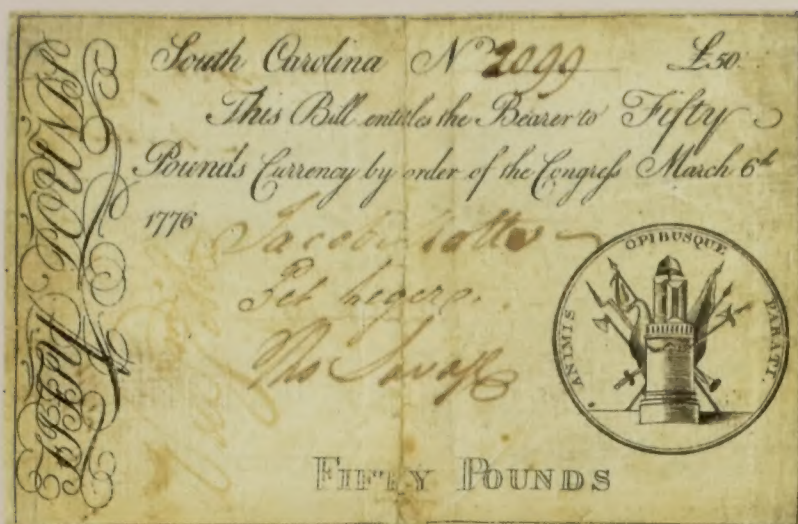 South Carolina No 2099 £50
This Bill entitles the Bearer to Fifty
Pounds Currency by order of the Congreſs March 6th
1776
Jacob
Pet Legere
Tho Savage
ANIMIS OPIBUSQUE PARATI.
FIFTY POUNDS
FIFTY POUNDS